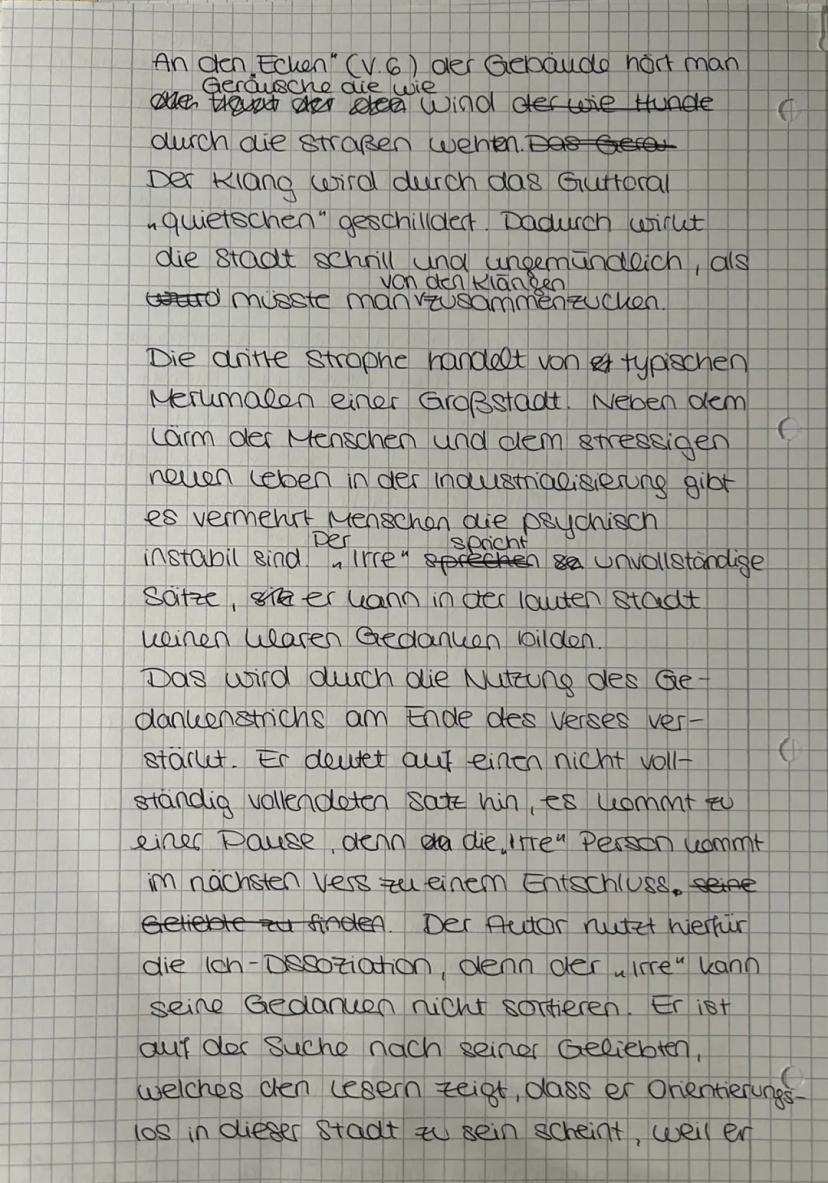 An den „Ecken" (V.6) der Gebäude hört man
Geräusche die wie
Wind der wie Hunde
durch die Straßen wehen. Das Gerä
Der Klang wird durch das Guttoral
„quietschen" geschilldert. Dadurch wirkt
die Stadt schrill und ungemündlich, als
von den Klängen
würd müsste man zusammenzucken.
Die dritte Strophe handelt von typischen
Merkmalen einer Großstadt. Neben dem
Lärm der Menschen und dem stressigen
neuen Leben in der Industrialisierung gibt
es vermehrt Menschen die psychisch
Der spricht
instabil sind. „Irre" sprechen se unvollständige
Sätze, sie er kann in der lauten Stadt
keinen klaren Gedanken bilden.
Das wird durch die Nutzung des Ge-
dankenstrichs am Ende des Verses ver-
stärkt. Er deutet auf einen nicht voll-
ständig vollendeten Satz hin, es kommt zu
einer Pause, denn da die „Irre" Person kommt
im nächsten Vers zu einem Entschluss. seine
Geliebte zu finden. Der Autor nutzt hierfür
die Ich-Dissoziation, denn der „Irre" kann
seine Gedanken nicht sortieren. Er ist
auf der Suche nach seiner Geliebten,
welches den Lesern zeigt, dass er Orientierungs-
los in dieser Stadt zu sein scheint, weil er